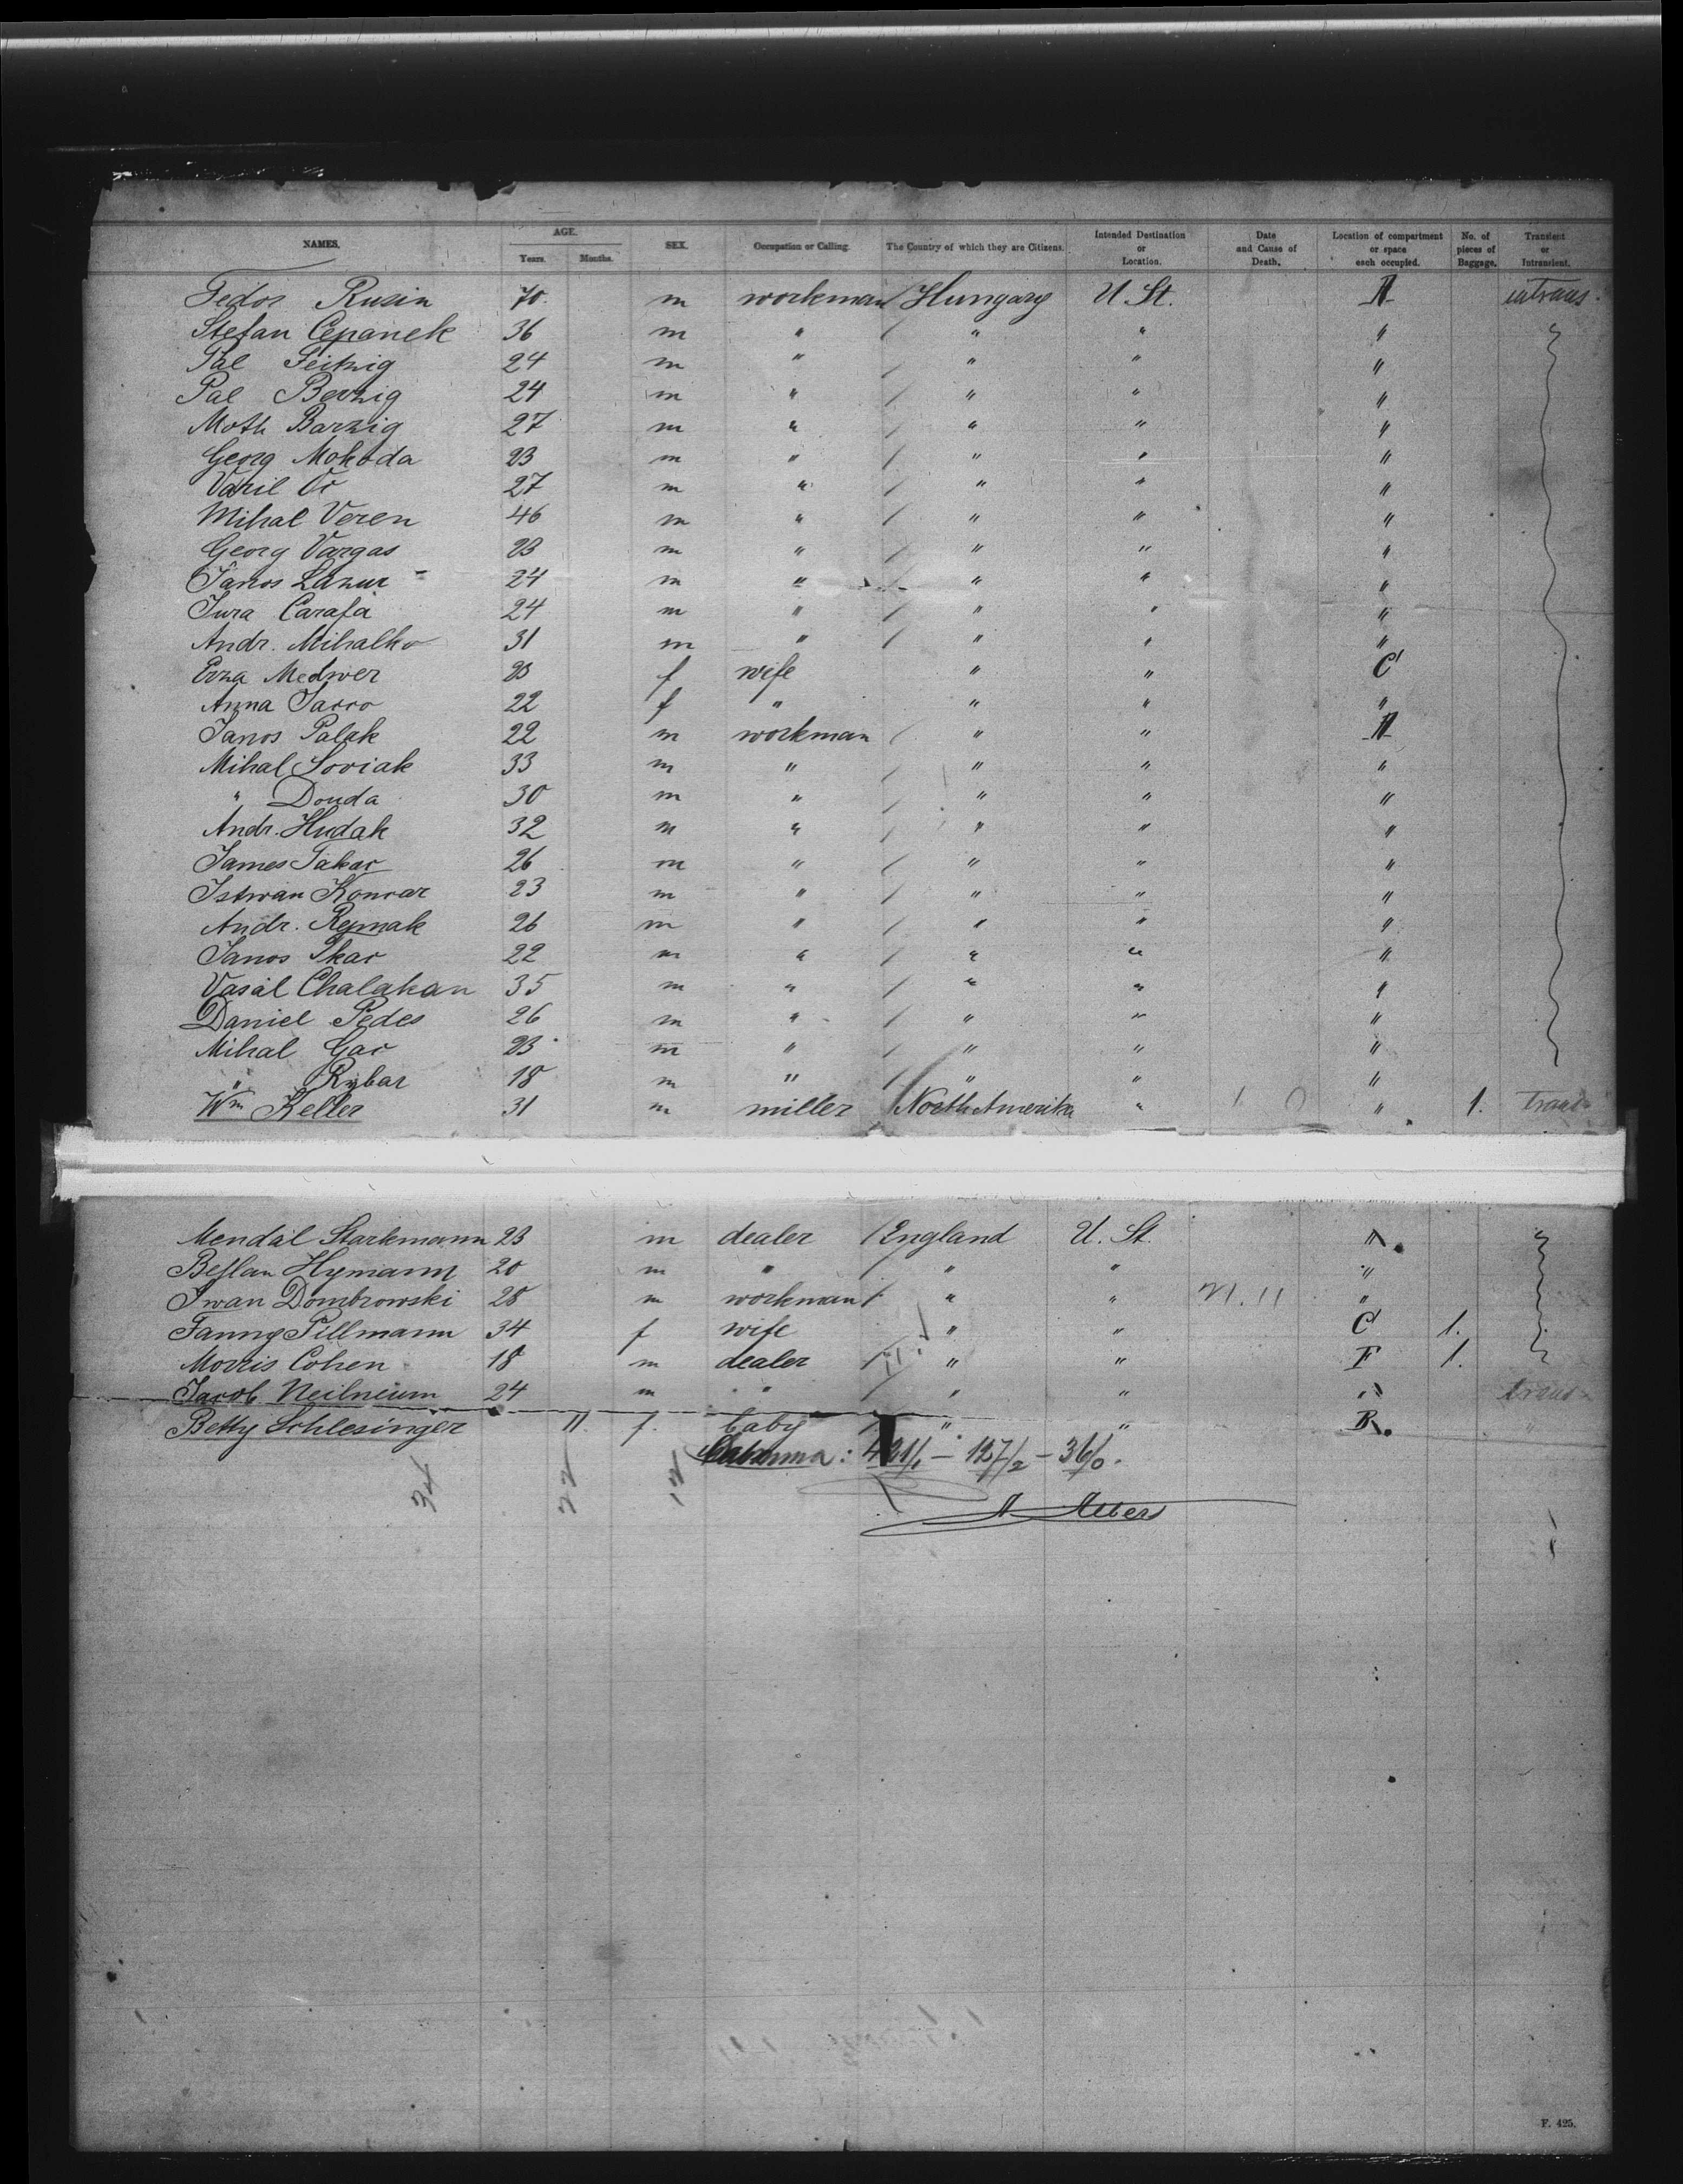 NAMES. AGE. Years. Months. SEX. Occupation or Calling. The Country of which they are Citizens. Intended Destination or Location. Date and Cause of Death. Location of compartment or space each occupied. No. of pieces of Baggage. Transient or Intransient.
Fedor Rusin 70 m workman Hungary U. St. A intrans.
Stefan Cepanek 36 m " " " "
Pal 24 m " " " "
Pal Berzig 24 m " " " "
Moth Barzig 27 m " " " "
Georg Mohoda 23 m " " " "
Vazil Or 27 m " " " "
Mihal Veren 46 m " " " "
Georg Vargas 23 m " " " "
Janos Lazur 24 m " " " "
Jura Carafa 24 m " " " "
Andr. Mihalko 31 m " " " "
Erza Medwer 23 f wife " " C
Anna Sarro 22 f " " " "
Janos Palak 22 m workman " " A
Mihal Soviak 33 m " " " "
" Douda 30 m " " " "
Andr. Hudak 32 m " " " "
James Takar 26 m " " " "
Istwan Konvar 23 m " " " "
Andr. Repnak 26 m " " " "
Janos Skar 22 m " " " "
Vasal Chalakan 35 m " " " "
Daniel Pedes 26 m " " " "
Mihal Gar 23 m " " " "
" Rybar 18 m " " " "
Wm Keller 31 m miller North Amerika " " 1. trans
Mendal Starkmann 23 m dealer England U. St. "
Beßlan Hymann 20 m " " " "
Iwan Dombrowski 28 m workman " " "
Fanny Pillmann 34 f wife " " C 1.
Morris Cohen 18 m dealer " " F 1.
Jacob Neilneium 24 m " " " " trans
Betty Schlesinger 11. f. baby " " B.
: 421/1 – 127/2 – 36/0.
34 22 12
A Albers
F. 425.